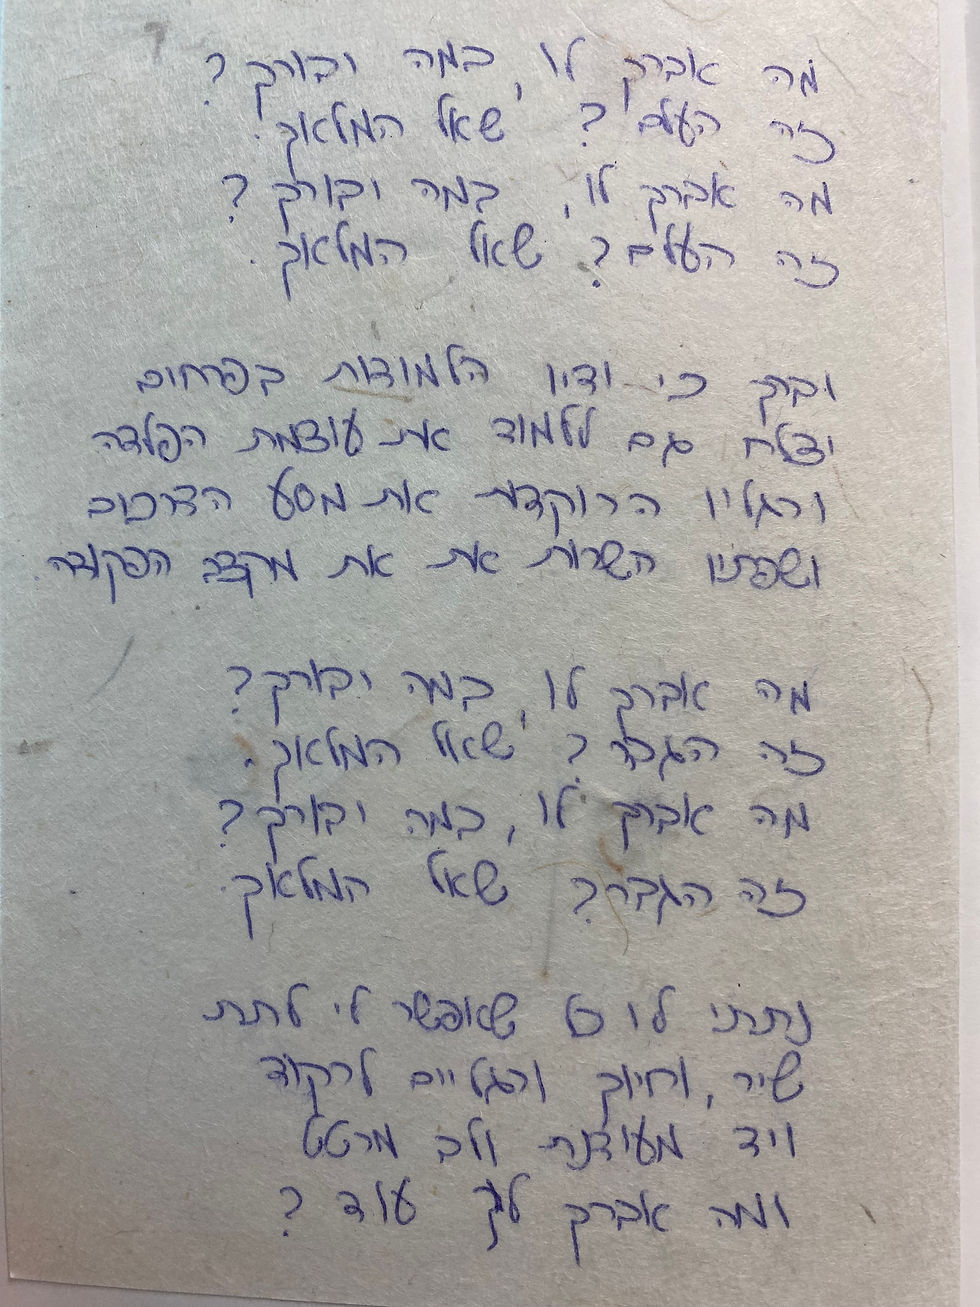 מה אברך לו, במה יבורך?
זה העלם? שאל המלאך.
מה אברך לו, במה יבורך?
זה העלם? שאל המלאך.
וברך כי ידיו הלמודות בפרחים
יצלח גם ללמוד את עוצמת הפלדה
ורגליו הרוקדת את מסע הדרכים
ושפתיו השרות את את מקצב הפקודה.
מה אברך לו, במה יבורך?
זה הגבר? שאל המלאך.
מה אברך לו, במה יבורך?
זה הגבר? שאל המלאך.
נתתי לו כל שאפשר לי לתת
שיר, וחיוך ורגליים לרקוד
ויד מעודנת ולב מרטט
ומה אברך לך עוד?